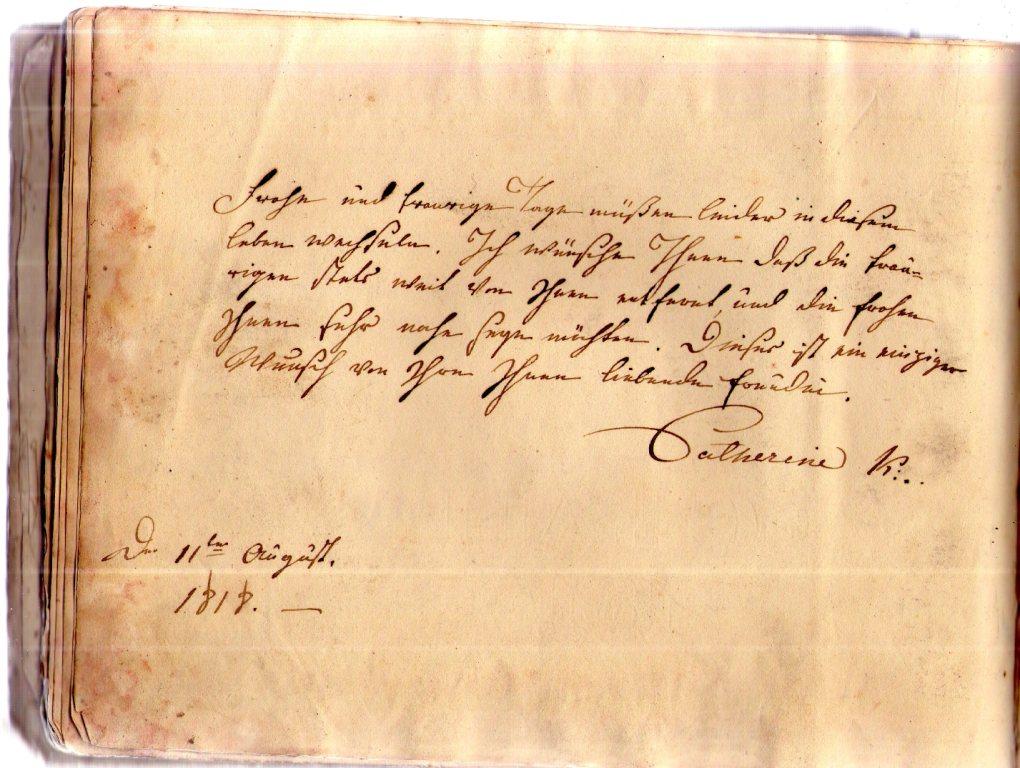 Frohe und traurige Tage müßen leider in diesem
leben wechseln. Ich wünsche Ihnen daß die trau-
rigen stets weit von Ihnen entfernt, und die frohen
Ihnen sehr nahe seyn möchten. Dieses ist ein einziger
Wunsch von Ihre Ihnen liebende freudin.
Catherine K:..
Den 11ten August.
1818. —